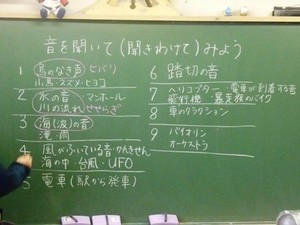 音を聞いて(聞きわけて)みよう
1 鳥のなき声 ヒバリ
小鳥・スズメ・ヒヨコ
2 水の音 マンホール
川の流れ せせらぎ
3 海(波)の音
滝・雨
4 風がふいている音・かんきせん
海の中・台風・UFO
5 電車(駅から発車)
6 踏切の音
7 ヘリコプター・電車が到着する音
飛行機・暴走族のバイク
8 車のクラクション
9 バイオリン
オーケストラ